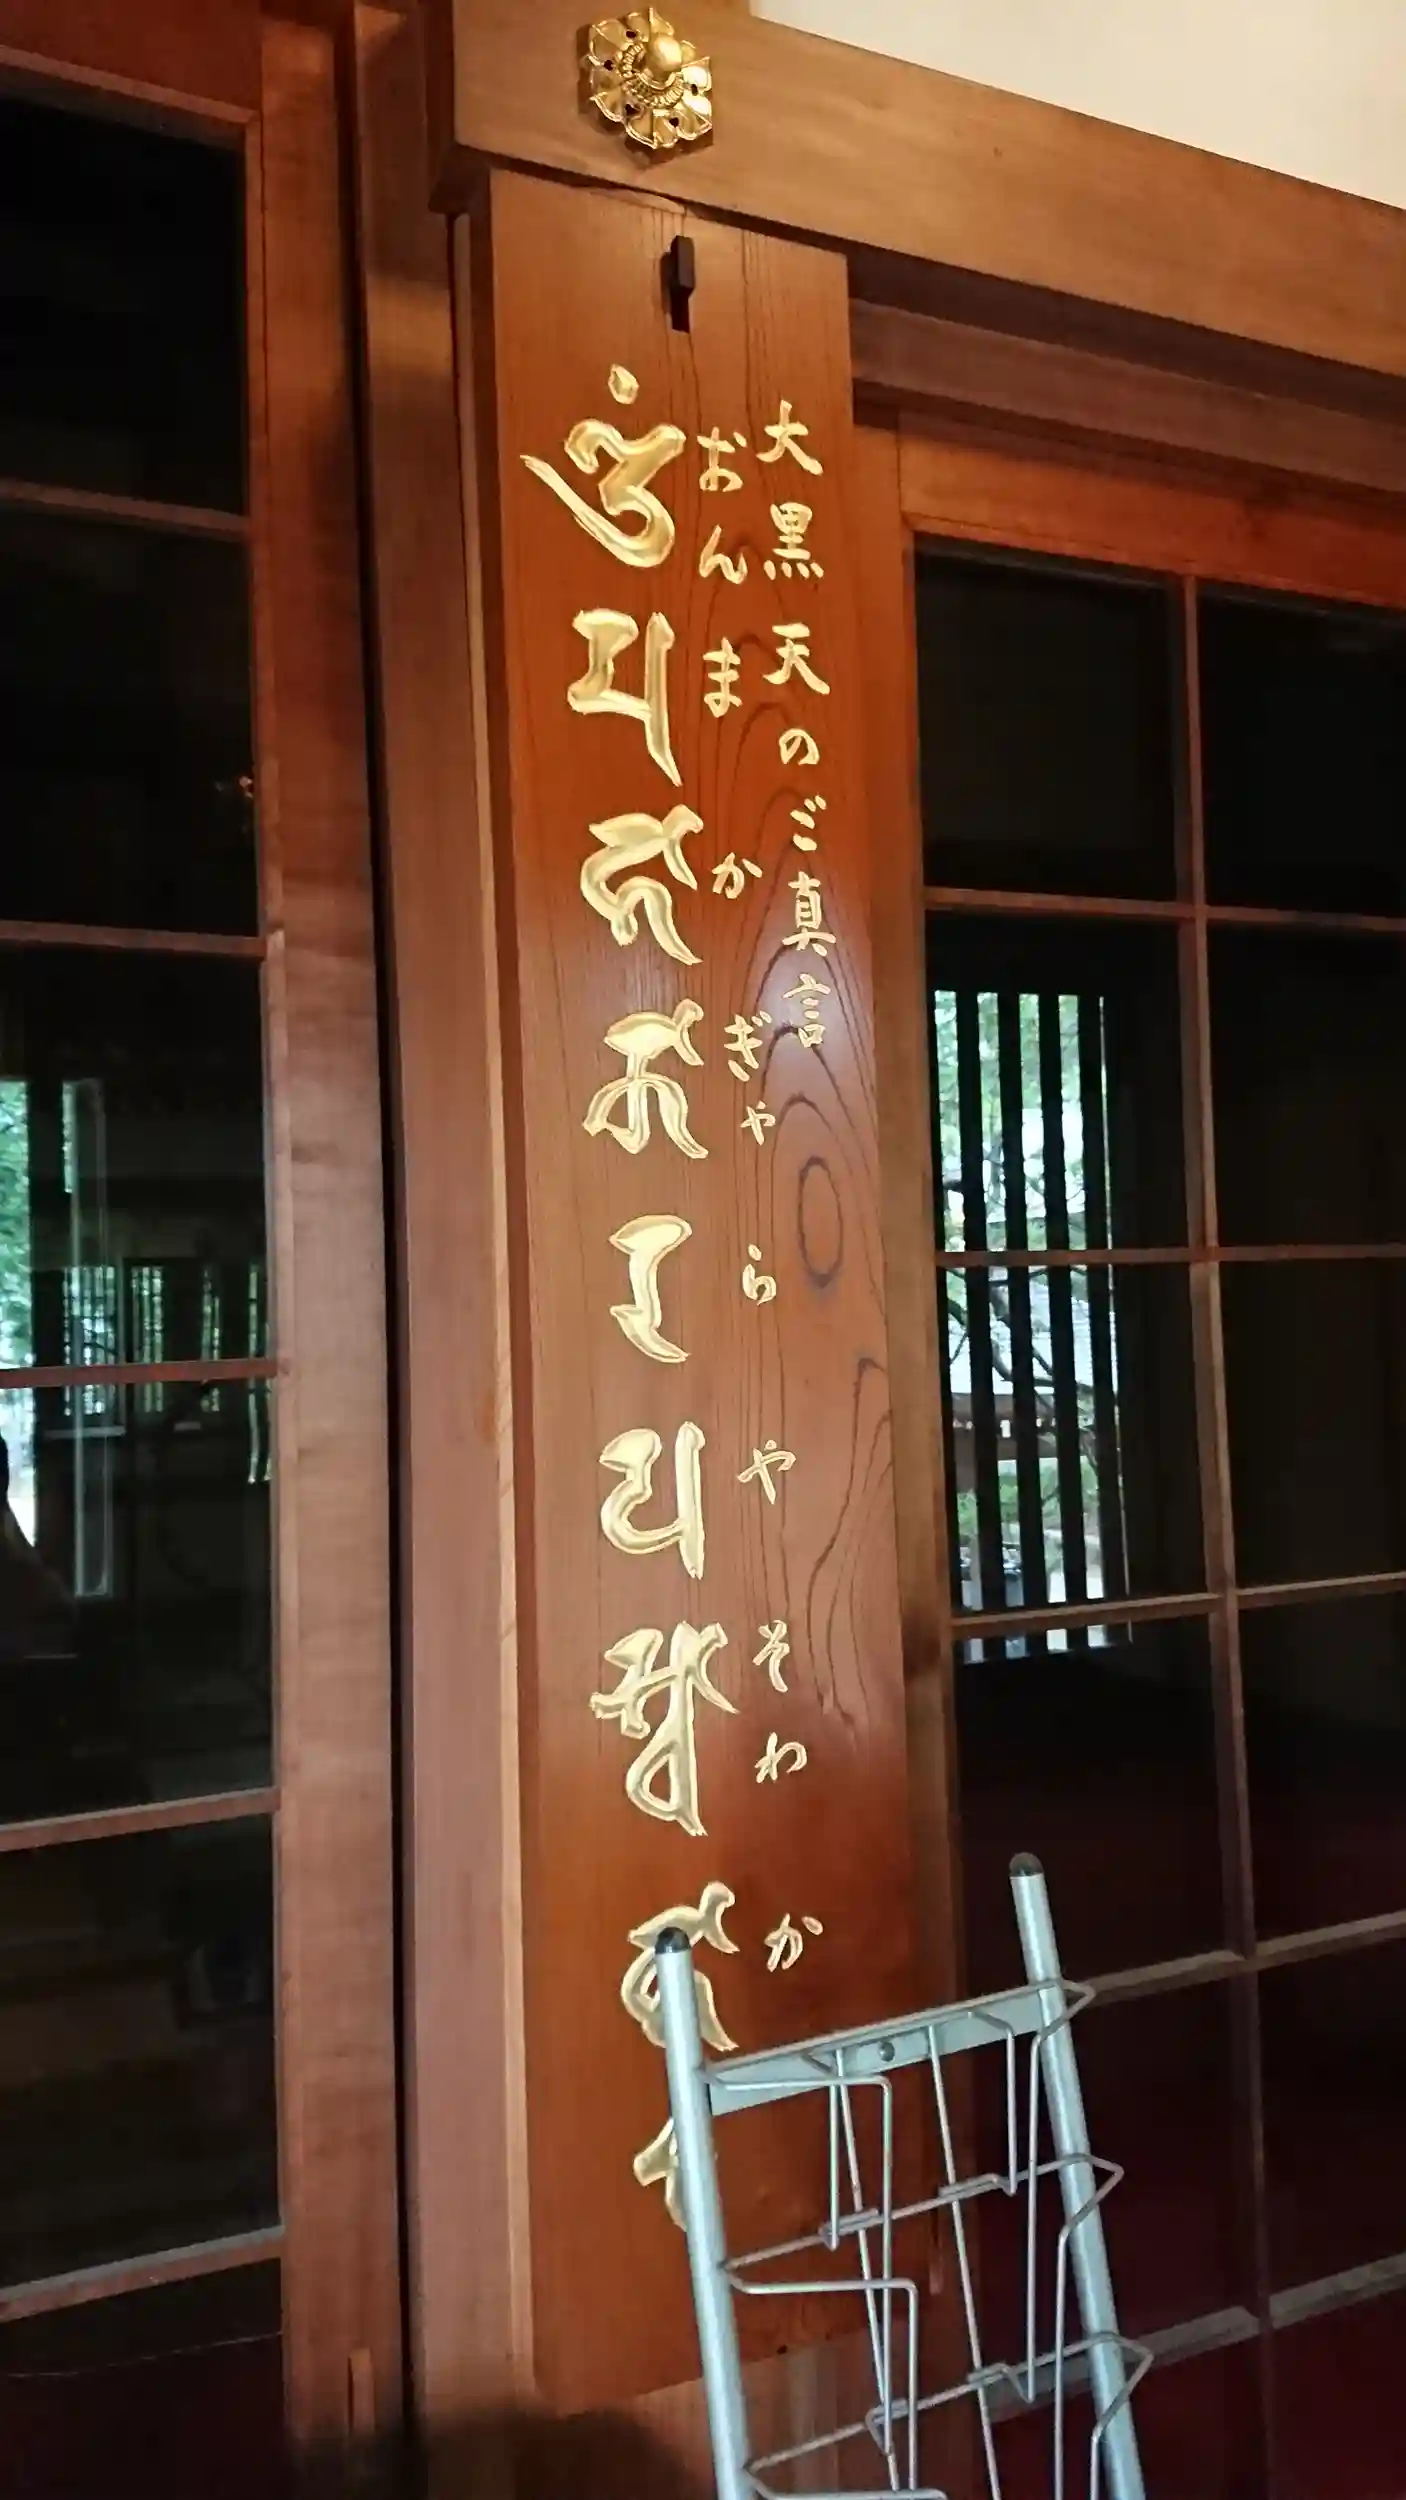 大黒天のご真言
おんまかぎゃらやそわか
𑖌𑖼𑖦𑖮𑖯𑖎𑖯𑖨𑖧𑖭𑖿𑖪𑖯𑖮𑖯